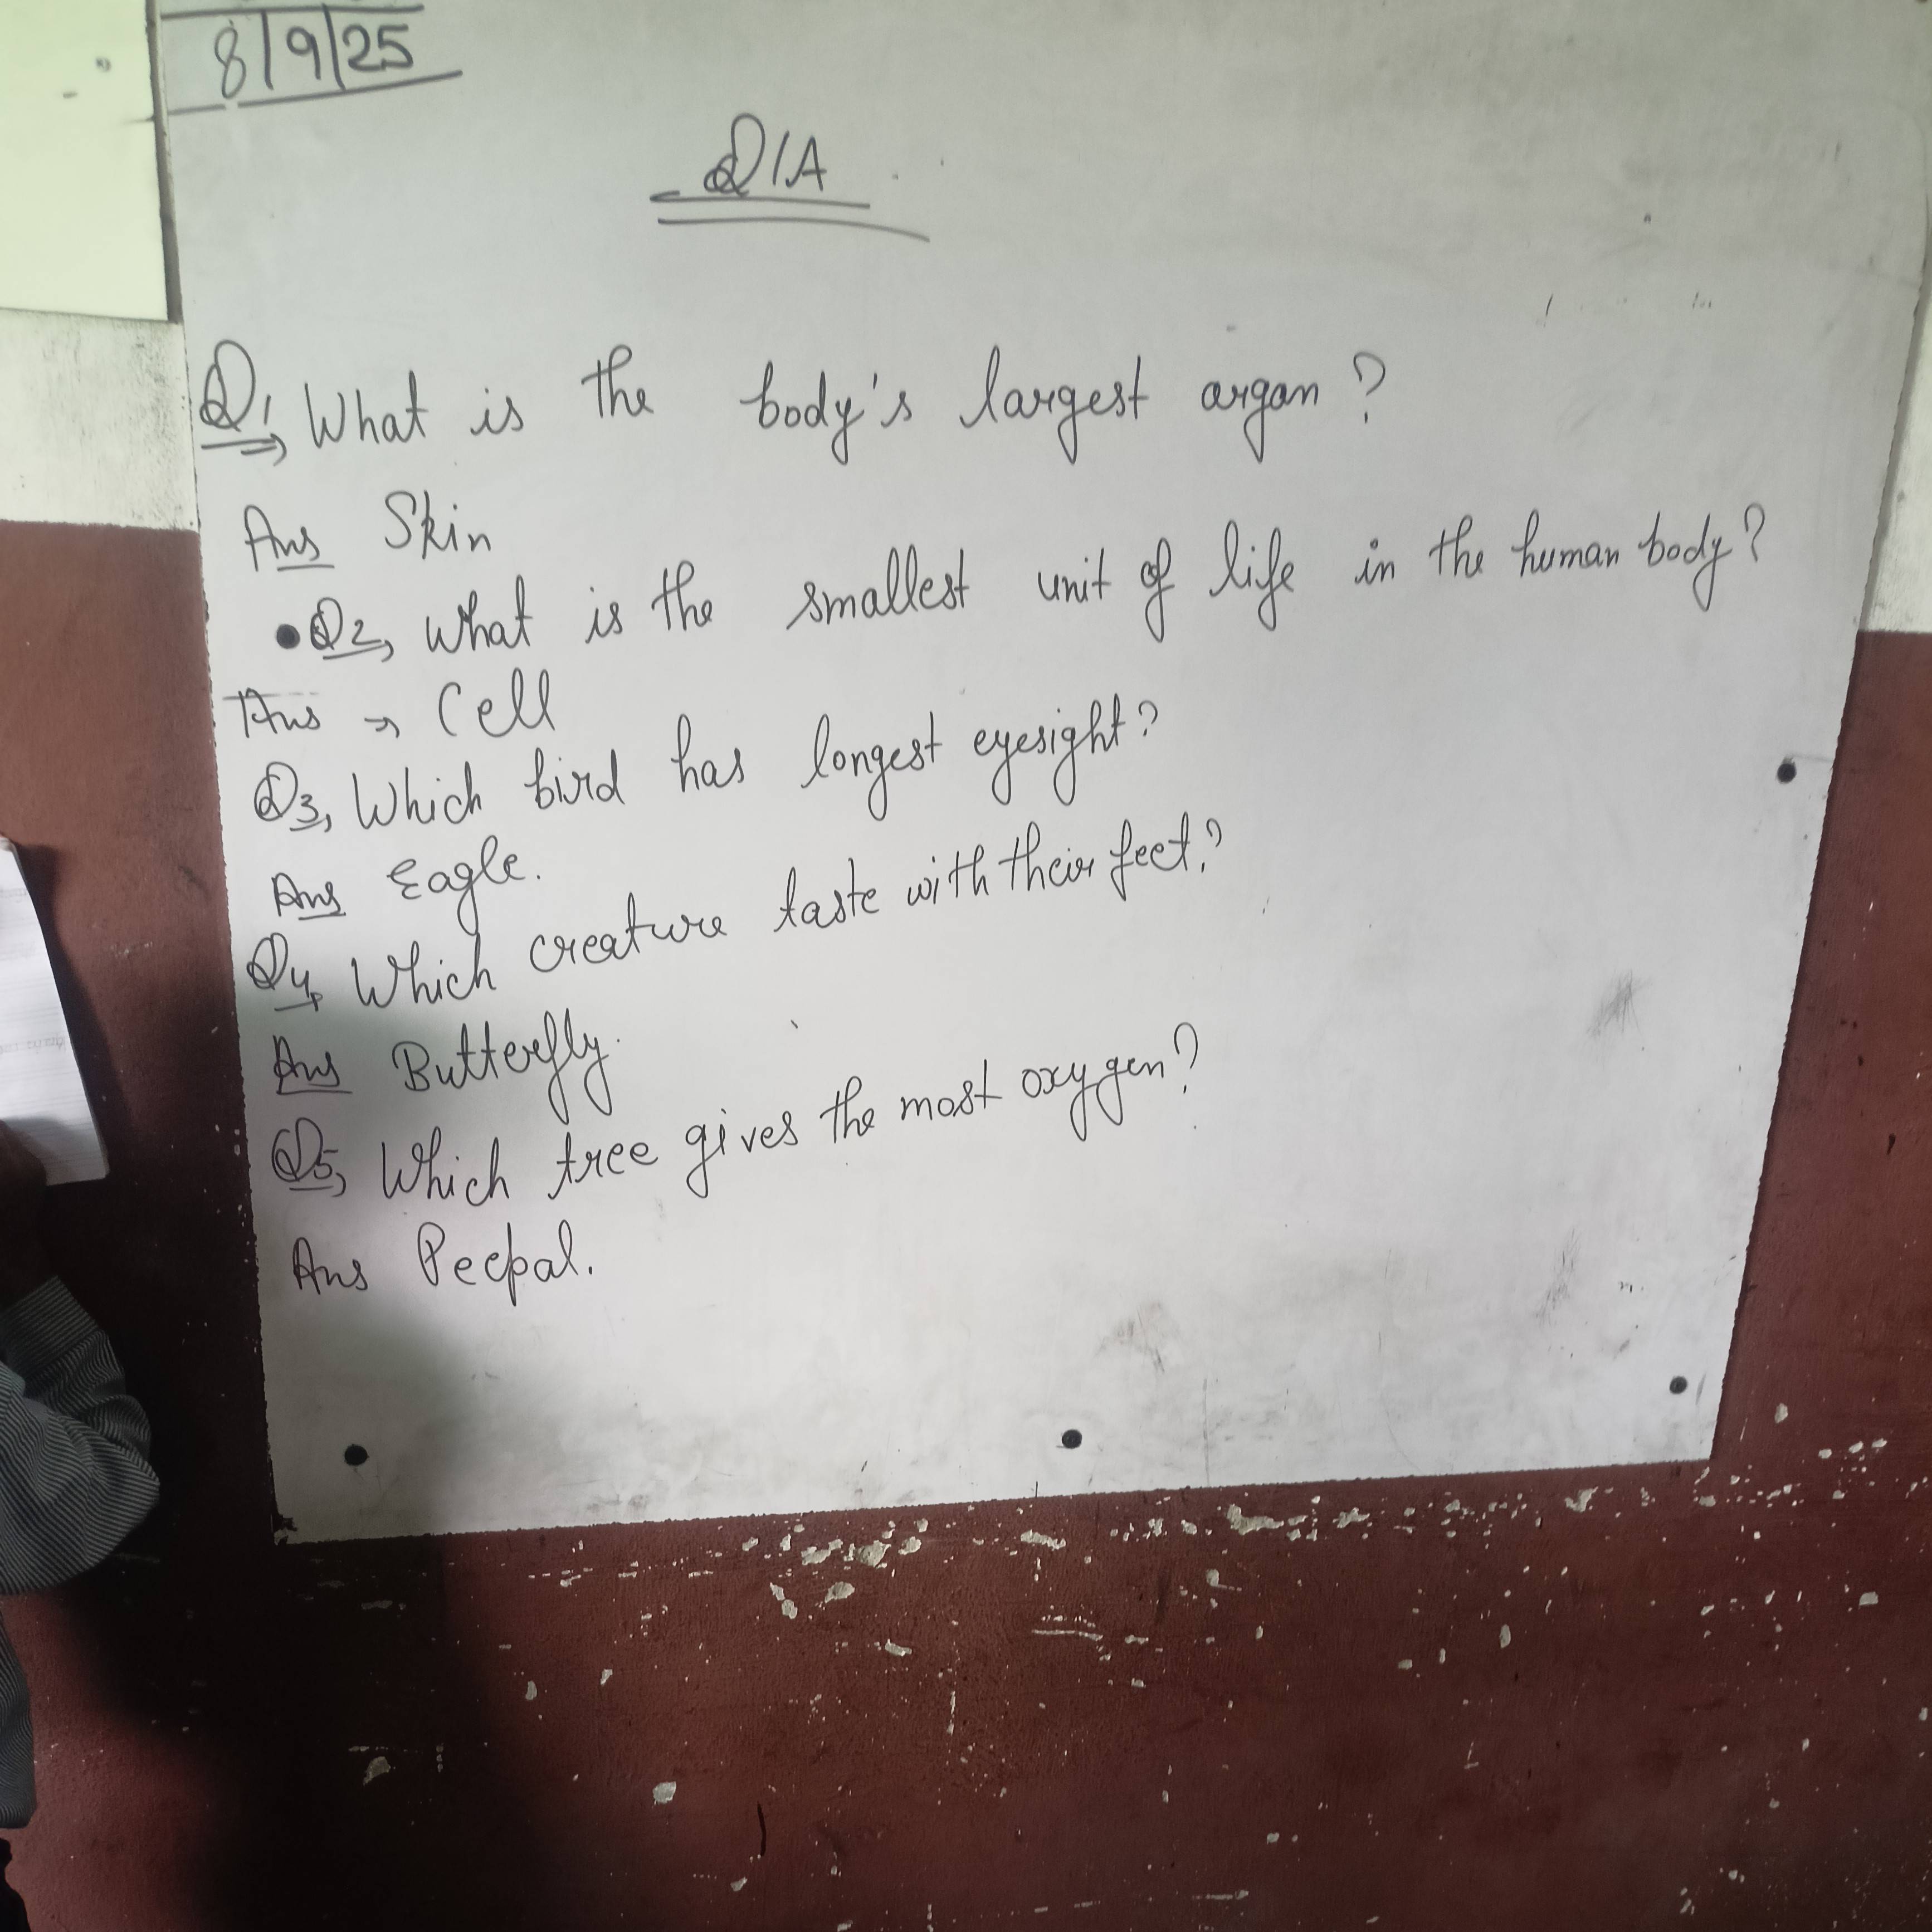 8/9/25
Q/A
Q1, What is the body's largest argan?
Ans Skin
Q2, What is the smallest unit of life in the human body?
Ans → Cell
Q3, Which bird has longest eyesight?
Ans Eagle.
Q4, Which creature taste with their feet?
Ans Butterfly.
Q5, Which tree gives the most oxygen?
Ans Peepal.